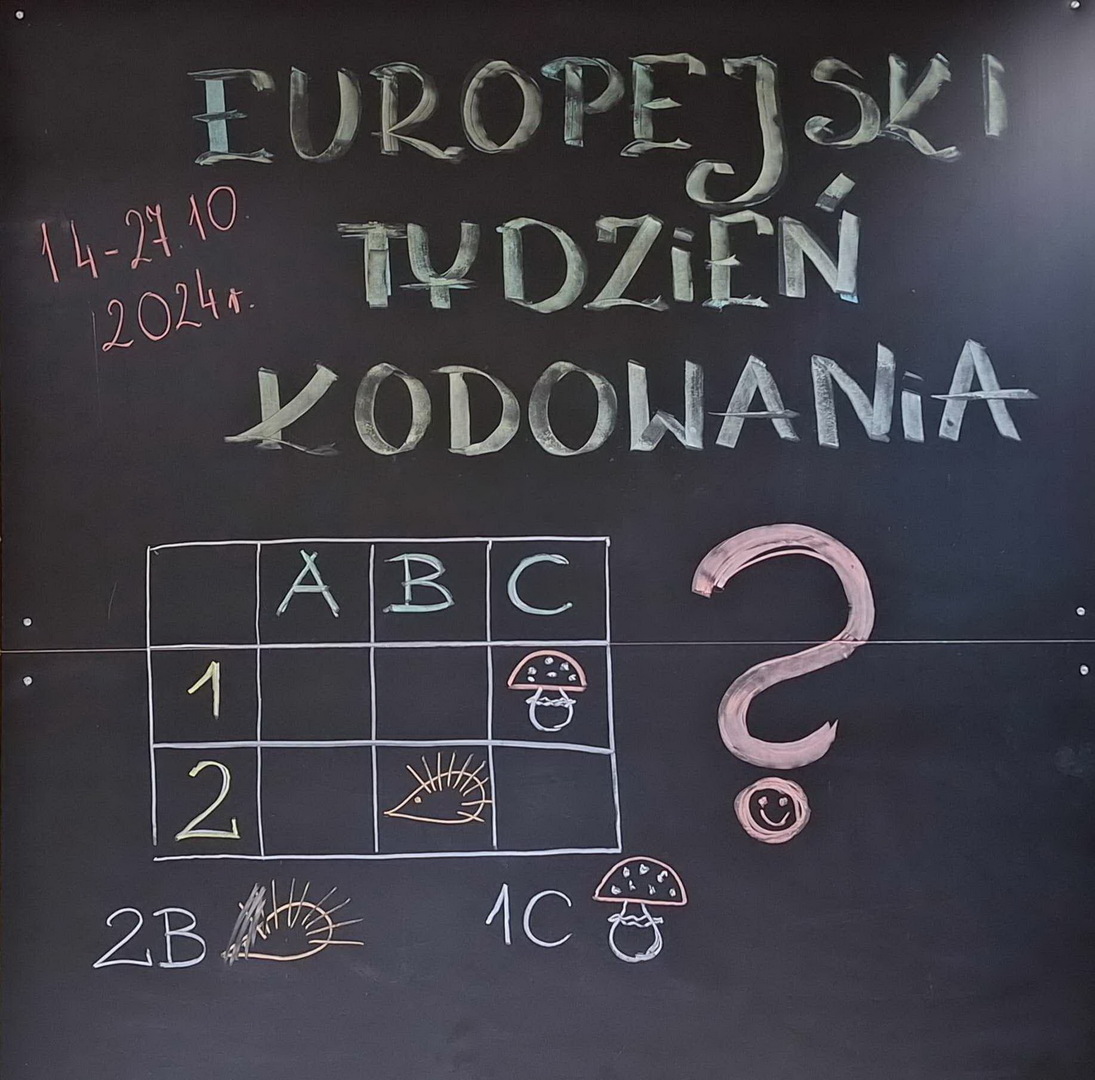 EUROPEJSKI
TYDZIEŃ
KODOWANIA
14-27.10
2024r.
A B C
1
2
2B 1C